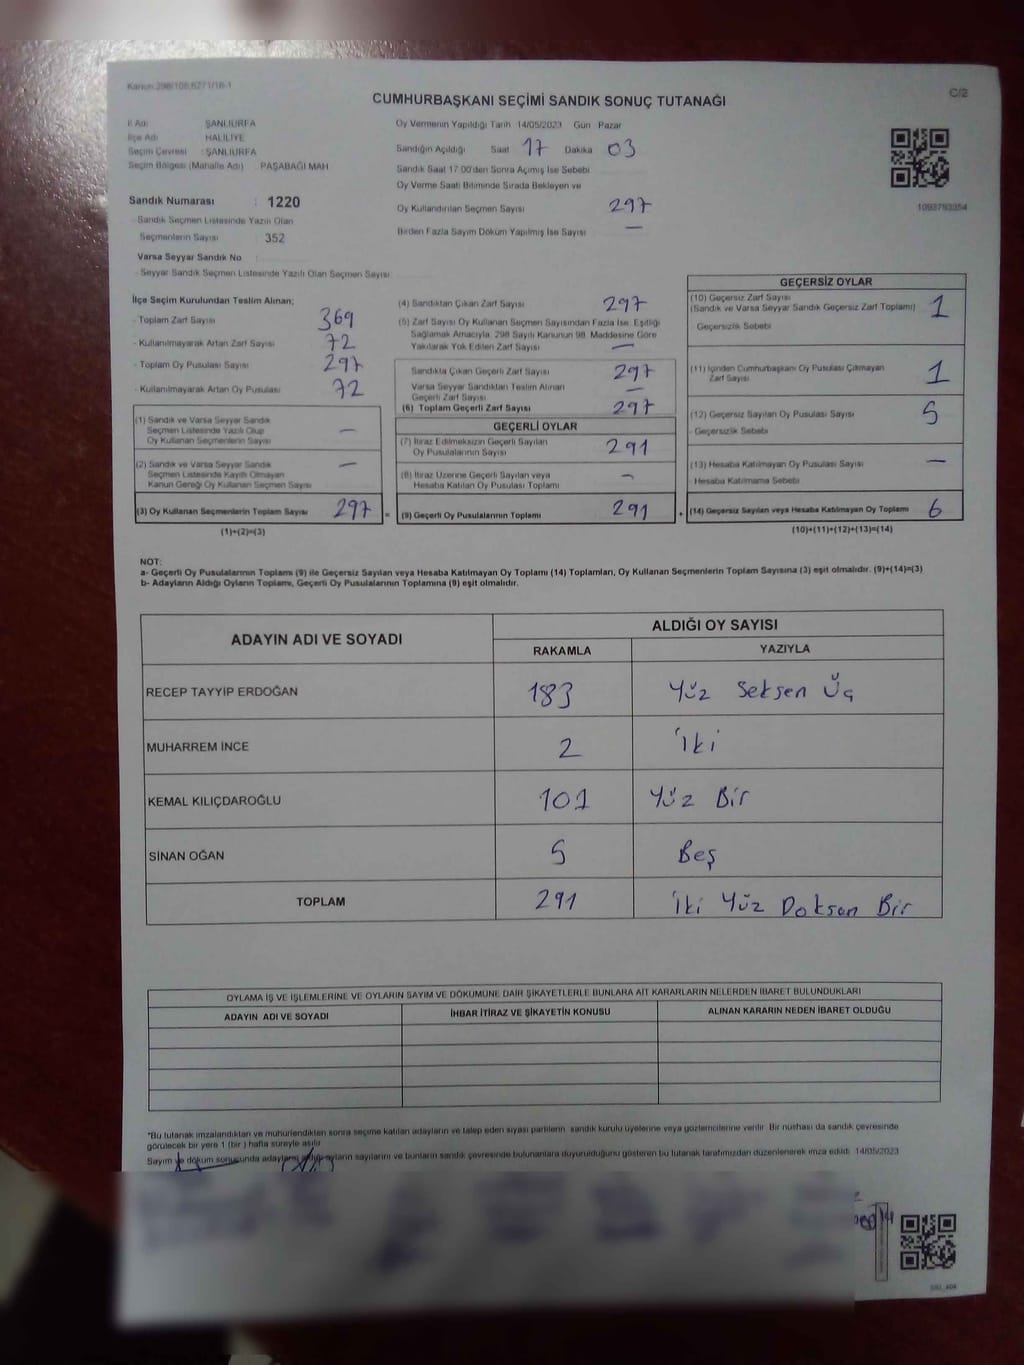 Kanun:298/105,6271/16-1
C/2
CUMHURBAŞKANI SEÇİMİ SANDIK SONUÇ TUTANAĞI
İl Adı : ŞANLIURFA
İlçe Adı : HALİLİYE
Seçim Çevresi : ŞANLIURFA
Seçim Bölgesi (Mahalle Adı) : PAŞABAĞI MAH
Sandık Numarası : 1220
- Sandık Seçmen Listesinde Yazılı Olan
Seçmenlerin Sayısı : 352
Varsa Seyyar Sandık No :
- Seyyar Sandık Seçmen Listesinde Yazılı Olan Seçmen Sayısı
Oy Vermenin Yapıldığı Tarih 14/05/2023 Gün Pazar
Sandığın Açıldığı Saat 17 Dakika 03
Sandık Saat 17:00'den Sonra Açımış İse Sebebi
Oy Verme Saati Bitiminde Sırada Bekleyen ve
Oy Kullandırılan Seçmen Sayısı 297
Birden Fazla Sayım Döküm Yapılmış İse Sayısı —
1093793354
İlçe Seçim Kurulundan Teslim Alınan;
- Toplam Zarf Sayısı 369
- Kullanılmayarak Artan Zarf Sayısı 72
- Toplam Oy Pusulası Sayısı 297
- Kullanılmayarak Artan Oy Pusulası 72
(1) Sandık ve Varsa Seyyar Sandık
Seçmen Listesinde Yazılı Olup
Oy Kullanan Seçmenlerin Sayısı —
(2) Sandık ve Varsa Seyyar Sandık
Seçmen Listesinde Kayıtlı Olmayan
Kanun Gereği Oy Kullanan Seçmen Sayısı —
(3) Oy Kullanan Seçmenlerin Toplam Sayısı 297 =
(1)+(2)=(3)
(4) Sandıktan Çıkan Zarf Sayısı 297
(5) Zarf Sayısı Oy Kullanan Seçmen Sayısından Fazla İse, Eşitliği
Sağlamak Amacıyla, 298 Sayılı Kanunun 98. Maddesine Göre
Yakılarak Yok Edilen Zarf Sayısı —
Sandıkta Çıkan Geçerli Zarf Sayısı 297
Varsa Seyyar Sandıktan Teslim Alınan
Geçerli Zarf Sayısı —
(6) Toplam Geçerli Zarf Sayısı 297
GEÇERLİ OYLAR
(7) İtiraz Edilmeksizin Geçerli Sayılan
Oy Pusulalarının Sayısı 291
(8) İtiraz Üzerine Geçerli Sayılan veya
Hesaba Katılan Oy Pusulası Toplamı —
(9) Geçerli Oy Pusulalarının Toplamı 291 +
GEÇERSİZ OYLAR
(10) Geçersiz Zarf Sayısı
(Sandık ve Varsa Seyyar Sandık Geçersiz Zarf Toplamı) 1
- Geçersizlik Sebebi
(11) İçinden Cumhurbaşkanı Oy Pusulası Çıkmayan
Zarf Sayısı 1
(12) Geçersiz Sayılan Oy Pusulası Sayısı 5
- Geçersizlik Sebebi
(13) Hesaba Katılmayan Oy Pusulası Sayısı —
Hesaba Katılmama Sebebi
(14) Geçersiz Sayılan veya Hesaba Katılmayan Oy Toplamı 6
(10)+(11)+(12)+(13)=(14)
NOT:
a- Geçerli Oy Pusulalarının Toplamı (9) ile Geçersiz Sayılan veya Hesaba Katılmayan Oy Toplamı (14) Toplamları, Oy Kullanan Seçmenlerin Toplam Sayısına (3) eşit olmalıdır. (9)+(14)=(3)
b- Adayların Aldığı Oyların Toplamı, Geçerli Oy Pusulalarının Toplamına (9) eşit olmalıdır.
ADAYIN ADI VE SOYADI
ALDIĞI OY SAYISI
RAKAMLA YAZIYLA
RECEP TAYYİP ERDOĞAN 183 Yüz Seksen Üç
MUHARREM İNCE 2 İki
KEMAL KILIÇDAROĞLU 101 Yüz Bir
SİNAN OĞAN 5 Beş
TOPLAM 291 İki Yüz Doksan Bir
OYLAMA İŞ VE İŞLEMLERİNE VE OYLARIN SAYIM VE DÖKÜMÜNE DAİR ŞİKAYETLERLE BUNLARA AİT KARARLARIN NELERDEN İBARET BULUNDUKLARI
ADAYIN ADI VE SOYADI İHBAR İTİRAZ VE ŞİKAYETİN KONUSU ALINAN KARARIN NEDEN İBARET OLDUĞU
*Bu tutanak imzalandıktan ve mühürlendikten sonra seçime katılan adayların ve talep eden siyasi partilerin sandık kurulu üyelerine veya gözlemcilerine verilir. Bir nüshası da sandık çevresinde
görülecek bir yere 1 (bir) hafta süreyle asılır
Sayım ve döküm sonucunda adayların aldığı oyların sayılarını ve bunların sandık çevresinde bulunanlara duyurulduğunu gösteren bu tutanak tarafımızdan düzenlenerek imza edildi. 14/05/2023